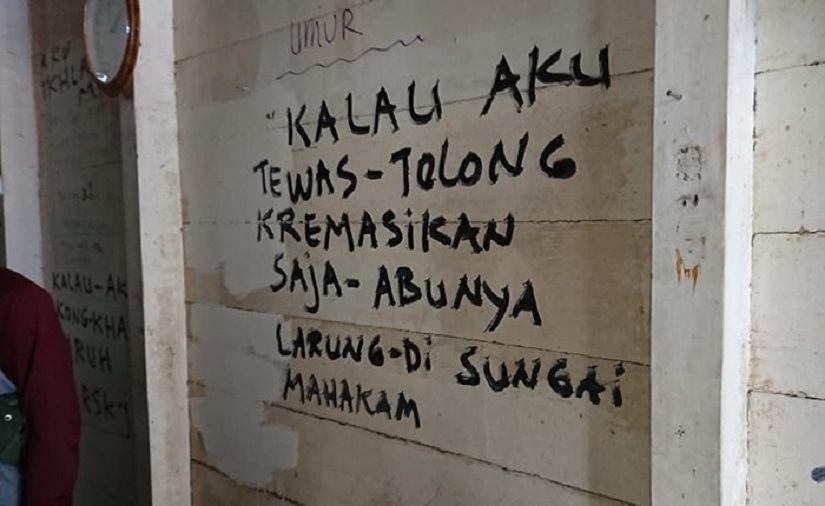 UMUR
"KALAU AKU
TEWAS-TOLONG
KREMASiKAN
SAJA-ABUNYA
LARUNG-Di SUNGAi
MAHAKAM
KALAU-AK
KONG-KHA
RUH
RSK-i